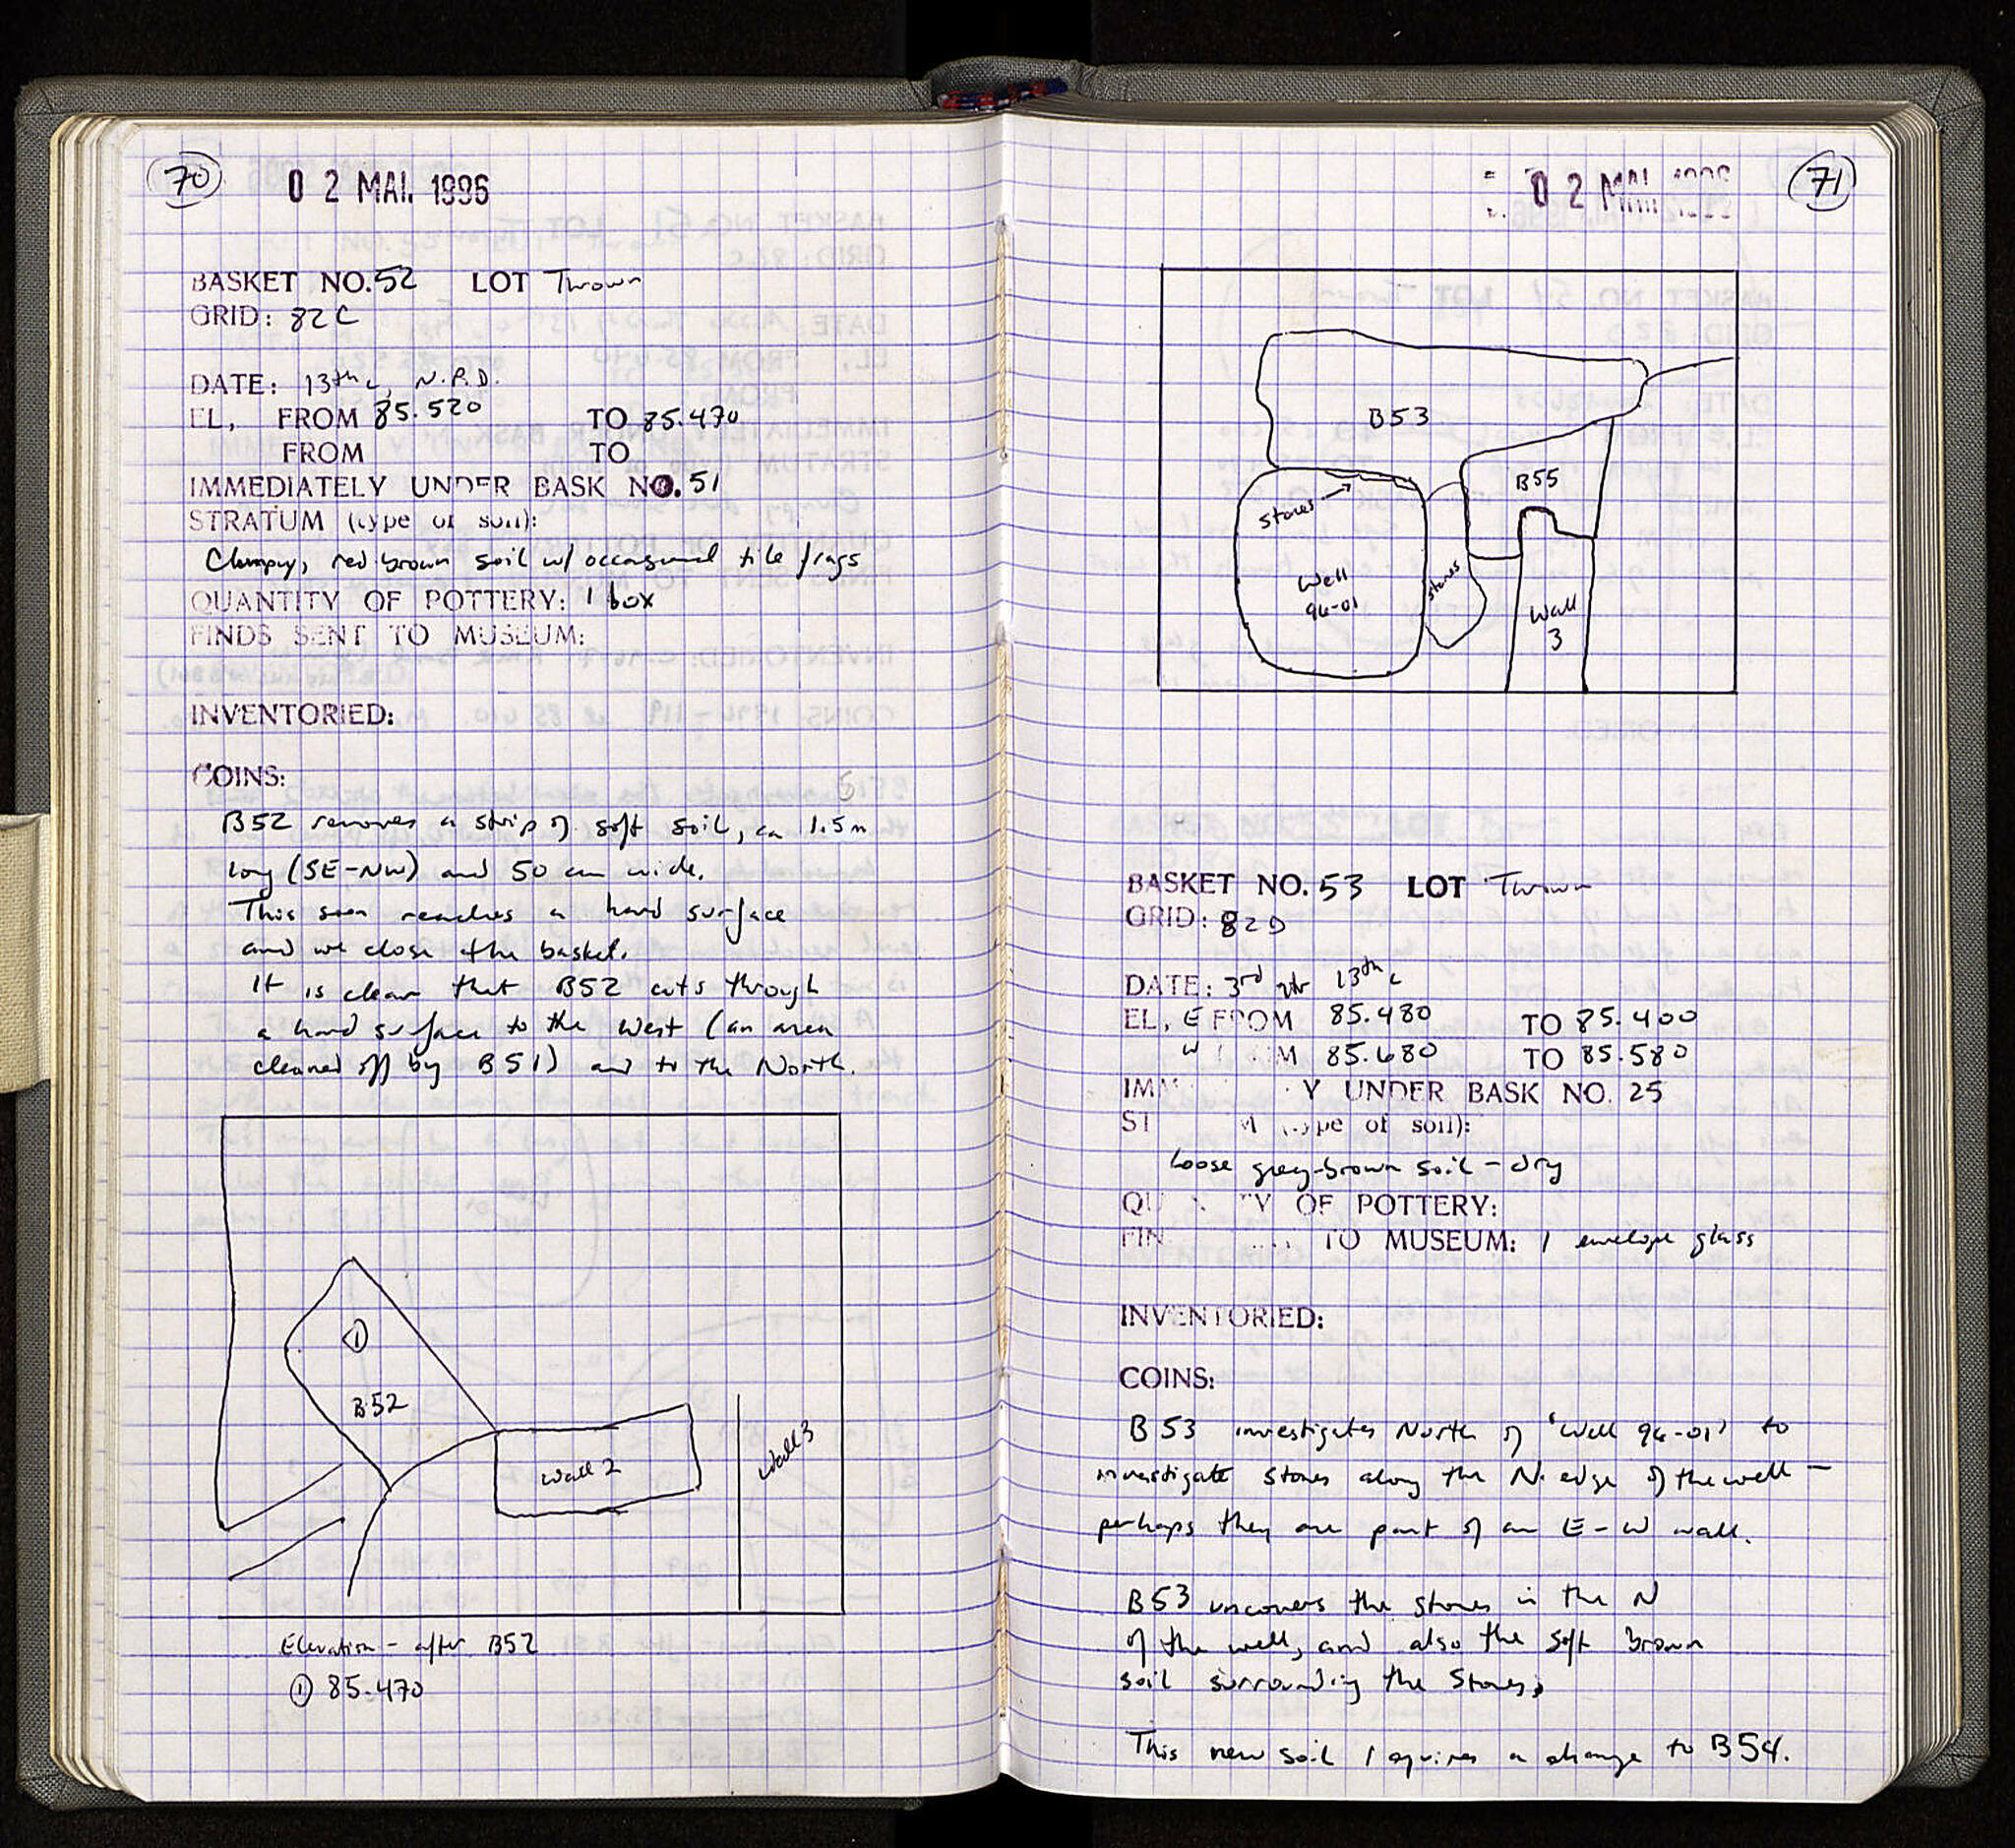 70
02 MAI. 1996
BASKET NO. 52 LOT Thrown
GRID: 82C
DATE: 13th c, N.P.D.
EL, FROM 85.520 TO 85.470
FROM TO
IMMEDIATELY UNDER BASK NO. 51
STRATUM (type of soil):
Clumpy, red-brown soil w/ occasional tile frags
QUANTITY OF POTTERY: 1 box
FINDS SENT TO MUSEUM:
INVENTORIED:
COINS:
B52 removes a strip of soft soil, ca 1.5m
long (SE-NW) and 50 cm wide.
This soon reaches a hard surface
and we close the basket.
It is clear that B52 cuts through
a hard surface to the West (an area
cleaned off by B51) and to the North.
1
B52
Wall 2
Wall 3
Elevation - after B52
① 85.470
02 MAI 1996
71
B53
B55
stones
Well
94-01
stones
Wall
3
BASKET NO. 53 LOT Thrown
GRID: 82D
DATE: 3rd qtr 13th c
EL, E FROM 85.480 TO 85.400
W FROM 85.680 TO 85.580
IMMEDIATELY UNDER BASK NO. 25
STRATUM (type of soil):
Loose grey-brown soil - dry
QUANTITY OF POTTERY:
FINDS SENT TO MUSEUM: 1 envelope glass
INVENTORIED:
COINS:
B53 investigates North of 'Well 94-01' to
investigate stones along the N. edge of the well —
perhaps they are part of an E-W wall.
B53 uncovers the stones in the N
of the well, and also the soft brown
soil surrounding the stones,
This new soil requires a change to B54.